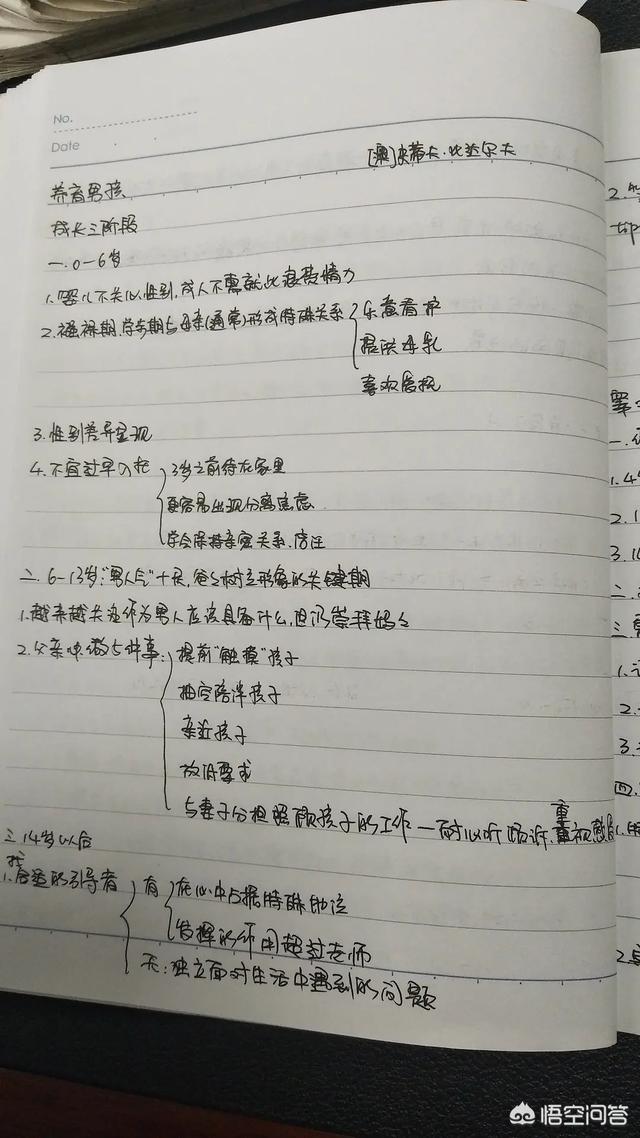 No.
Date
[澳]史蒂夫·比达尔夫
养育男孩
成长三阶段
一.0-6岁
1.婴儿不关心性别,成人不需就此浪费精力
2.襁褓期、学步期与母亲(通常)形成特殊关系 乐意看护
提供母乳
喜欢
3.性别差异显现
4.不宜过早入托 3岁之前待在家里
更容易出现分离焦虑
学会保持亲密关系、信任
二.6-13岁:“男人气”十足,爸爸树立形象的关键期
1.越来越关注作为男人应该具备什么,但仍崇拜妈妈
2.父亲 做5件事: 提前“触摸”孩子
抽空陪伴孩子
亲近孩子
放低要求
与妻子分担照顾孩子的工作—耐心听倾诉,重视
三.14岁以后
1.找合适的引导者 有 在心中占据特殊地位
发挥的作用超过老师
无:独立面对生活中遇到的问题
2.
top
一.
1.4岁
2.1
3.1
二.
三.
1.
2.
3.
四.
1.
2.
悟空问答